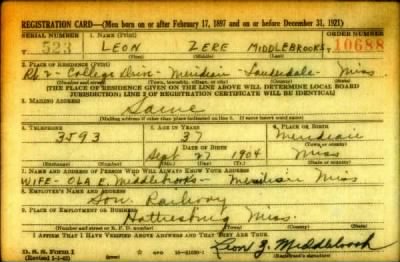 REGISTRATION CARD—(Men born on or after February 17, 1897 and on or before December 31, 1921)
SERIAL NUMBER 1. NAME (Print) ORDER NUMBER
T 523 LEON ZERE MIDDLEBROOKS T 10688
(First) (Middle) (Last)
2. PLACE OF RESIDENCE (Print)
Rt 2 - College Drive - Meridian - Lauderdale - Miss
(THE PLACE OF RESIDENCE GIVEN ON THE LINE ABOVE WILL DETERMINE LOCAL BOARD
JURISDICTION; LINE 2 OF REGISTRATION CERTIFICATE WILL BE IDENTICAL)
3. MAILING ADDRESS
Same
[Mailing address if other than place indicated on line 2. If same insert word same]
4. TELEPHONE 5. AGE IN YEARS 6. PLACE OF BIRTH
3593 37 Meridian
DATE OF BIRTH (Town or county)
Sept 27 1904 Miss
(Exchange) (Number) (Mo.) (Day) (Yr.) (State or country)
7. NAME AND ADDRESS OF PERSON WHO WILL ALWAYS KNOW YOUR ADDRESS
WIFE - OLA E. Middlebrooks - Meridian Miss
8. EMPLOYER'S NAME AND ADDRESS
Sou. Railway
9. PLACE OF EMPLOYMENT OR BUSINESS
Hattiesburg Miss.
(Number and street or R. F. D. number) (Town) (County) (State)
I AFFIRM THAT I HAVE VERIFIED ABOVE ANSWERS AND THAT THEY ARE TRUE.
D. S. S. Form 1
(Revised 1-1-42) Leon Z. Middlebrook
(Registrant's signature)